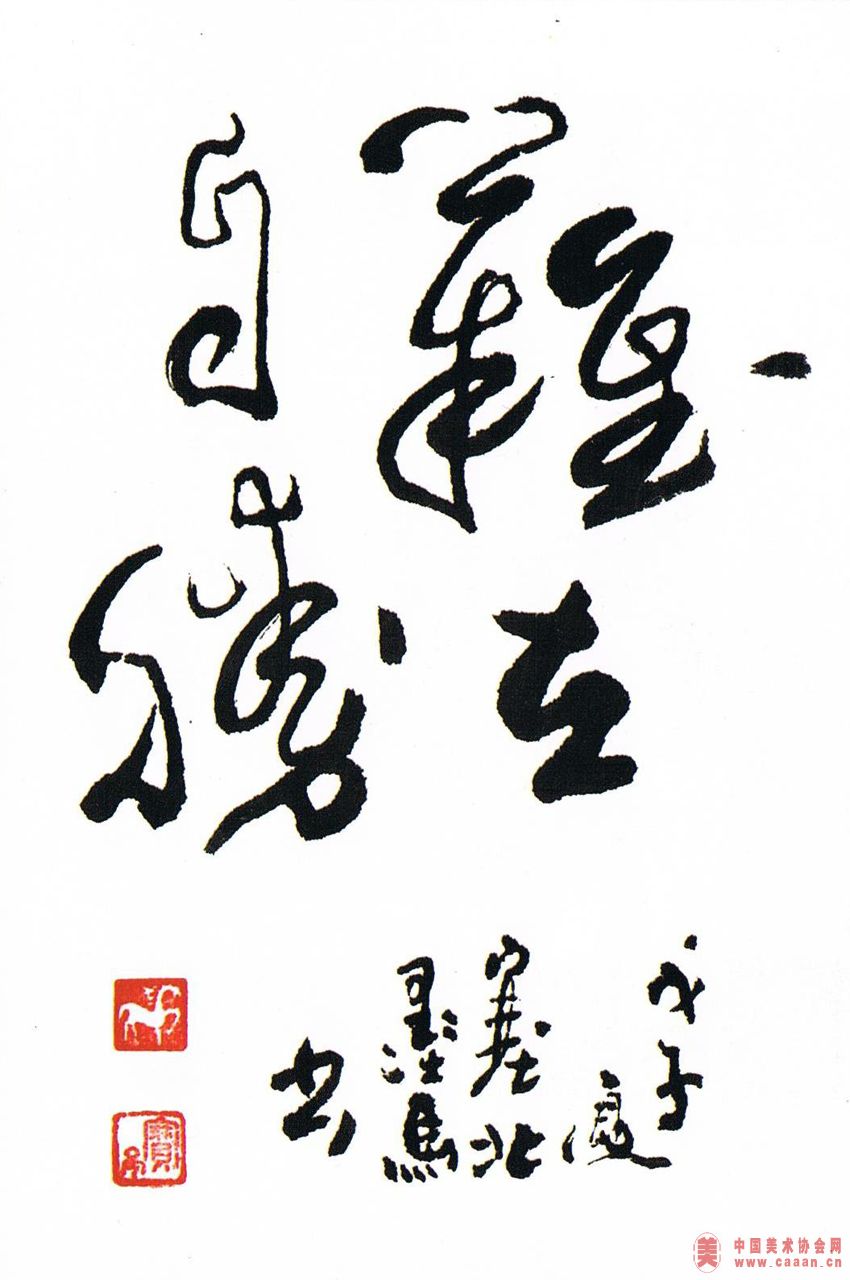 難在
自勝
戊子
夏
塞北
墨馬
书
美
中国美术协会网
www.caaan.cn